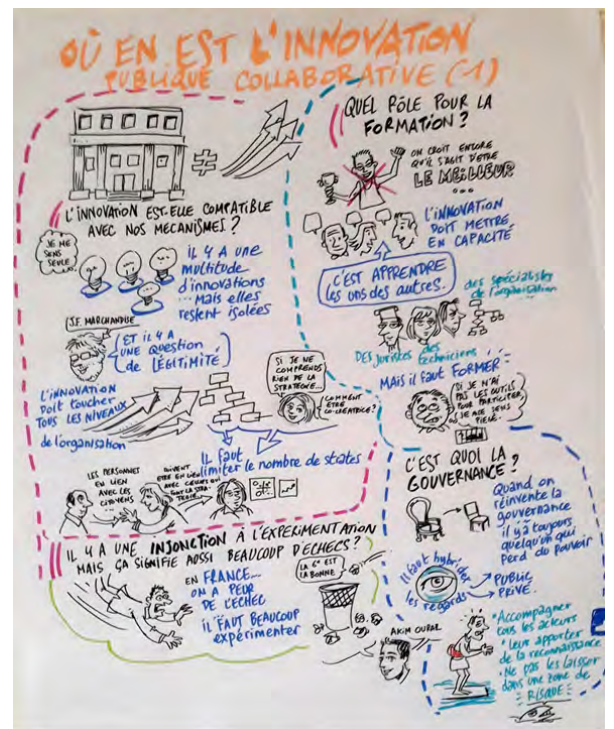 OÙ EN EST L'INNOVATION
PUBLIQUE COLLABORATIVE (1)
L'INNOVATION EST-ELLE COMPATIBLE
AVEC NOS MÉCANISMES ?
JE ME
SENS
SEULE.
IL Y A UNE
multitude
d'innovations
... Mais elles
restent isolées
J.F. MARCHANDISE
ET IL Y A
UNE QUESTION
de LÉGITIMITÉ
L'INNOVATION
Doit toucher
TOUS LES NIVEAUX
de l'organisation
SI JE NE
COMPRENDS
RIEN DE LA
STRATÉGIE...
COMMENT
ÊTRE
CO-CRÉATRICE ?
IL faut
limiter le nombre de strates
LES PERSONNES
EN LIEN
AVEC LES
CITOYENS
DOIVENT
ÊTRE EN LIEN
AVEC CELLES QUI
FONT LA STRA-
TÉGIE
IL Y A UNE INJONCTION À L'EXPÉRIMENTATION
MAIS ÇA SIGNIFIE AUSSI BEAUCOUP D'ÉCHECS ?
EN FRANCE...
ON A PEUR
DE L'ÉCHEC
IL FAUT BEAUCOUP
expérimenter
LA 6e EST
LA BONNE
AKIM OURAL
QUEL RÔLE POUR LA
FORMATION ?
ON CROIT ENCORE
QU'IL S'AGIT D'ÊTRE
LE MEILLEUR
...
L'INNOVATION
DOIT METTRE
EN CAPACITÉ
C'EST APPRENDRE
les uns des autres.
des spécialistes
de l'organisation
DES juristes
des
techniciens
MAIS il faut FORMER
SI JE N'AI
PAS LES OUTILS
POUR PARTICIPER,
JE ME SENS
PIÉGÉ.
C'EST QUOI LA
GOUVERNANCE ?
Quand on
réinvente la
gouvernance
il y a toujours
quelqu'un qui
perd du pouvoir
Il faut hybrider
les regards
PUBLIC
PRIVÉ.
• Accompagner
tous les acteurs
• Leur apporter
de la reconnaissance
• Ne pas les laisser
dans une zone de
RISQUE